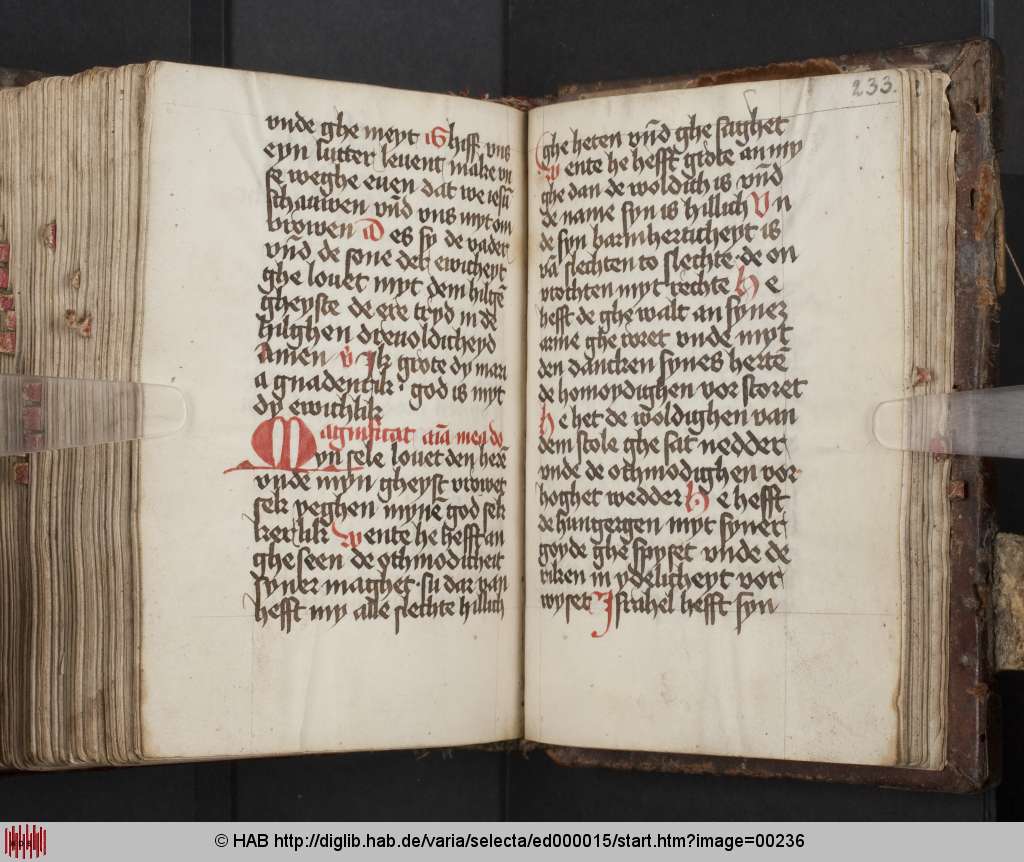 vnde ghe meyt is Shiff vns
eyn lutter leuent make vn
se weghe euen dat we iesū
schauwen vñd vns myt om
vrowen D es sy de vader
vñd de sone der ewicheyt
ghe louet myt dem hilgē
gheyste de ere tryd in de
hilghen dreuoldicheyd
Amen v̇ Ik grote dy mari
a gnadentrik· god is myt
dy ewichlik
Magnificat aīa mea do
yn sele louet den herē
vnde myn gheyst vrowet
sek yeghen mynē god sek
kerlik Wente he hefft an
gheseen de othmodicheit
syner maghet· su dar van
hefft my alle slechte hillich
233.
ghe heten vñd ghe saghet
Wente he hefft grote an my
ghe dan de woldich is vñd
de name syn is hillich Vn
de syn barmherticheyt is
vā slechten to slechte· de on
vrochten myt rechte H e
hefft de ghe walt an syner
arme ghe voret vnde myt
den dancken synes hertē
de homoydighen vor storet
He het de woldighen van
dem stole ghe sat nedder
vnde de othmodighen vor
hoghet wedder H e hefft
de hungergen myt syner
goyde ghe spyset vnde de
riken in ydelicheyt vor
wyset Jsrahel hefft syn
© HAB http://diglib.hab.de/varia/selecta/ed000015/start.htm?image=00236